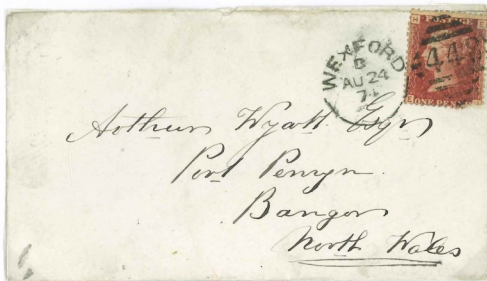 WEXFORD
B
AU 24
71
442
ONE PENNY
Arthur Wyatt Esqr
Port Penryn
Bangor
North Wales